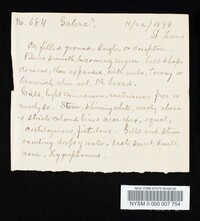 No. 684 Galera? 11/22/1899
St. Louis
On filled ground. Single, or cespitose.
Pileus smooth, becoming rugose, bell shape
conical, then expanded, with umbo, tawny or
brownish when wet. No broad.
Gills, light cinnamon, ventricose, free, or
nearly so. Stem, shining white, mealy above
& striate colored lines near apex, equal,
cartilaginous, fistulose. Gills and stem
exuding drops of water. Taste sweet, smell
none. Hygrophanous.
NEW YORK STATE MUSEUM
NYSM 0 000 007 754